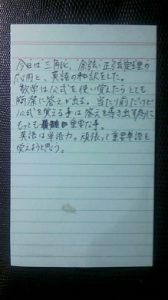 今日は三角比、余弦・正弦定理
の応用と、英語の和訳をした。
数学は公式を使い覚えたらとても
簡潔に答えが出る。当たり前だけど
公式を覚える事は答えを導き出す為に
もっとも重要な事。
英語は単語力。頑張って重要単語を
覚えようと思う。